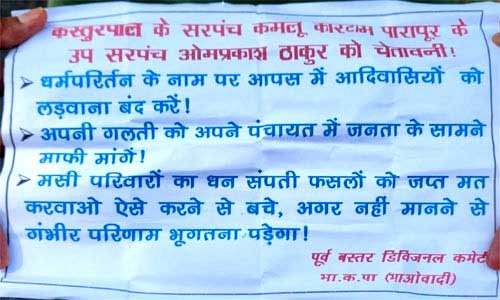 कस्तुरपाल के सरपंच कमलू कारटाम पारापूर के
उप सरपंच ओमप्रकाश ठाकुर को चेतावनी!
➢ धर्मपरिर्तन के नाम पर आपस में आदिवासियों को
लड़वाना बंद करें!
➢ अपनी गलती को अपने पंचायत में जनता के सामने
माफी मांगें!
➢ मसी परिवारों का धन संपती फसलों को जप्त मत
करवाओ ऐसे करने से बचे, अगर नहीं मानने से
गंभीर परिणाम भूगतना पड़ेगा!
पूर्व बस्तर डिविजनल कमेटी
भा.क.पा (माओवादी)